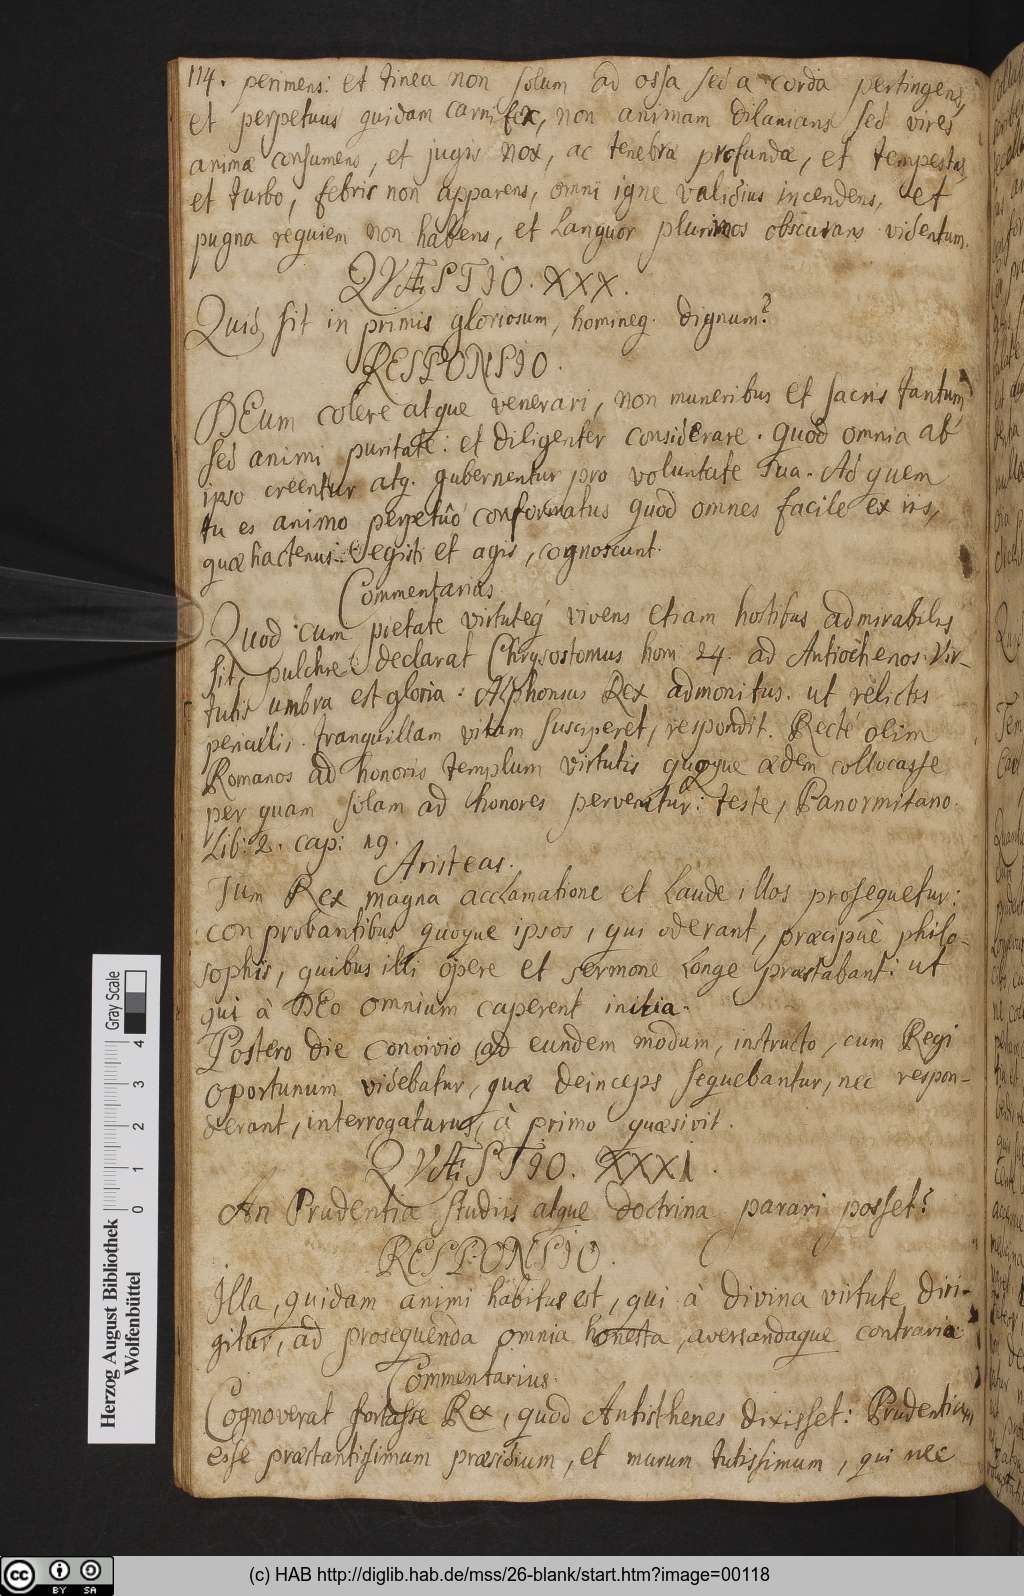 114. perimens: et tinea non solum ad ossa sed a corda pertingens,
et perpetuus quidam carnifex, non animam dilanians sed vires
animæ consumens, et jugis nox, ac tenebræ profundæ, et tempestas
et turbo, febris non apparens, omni igne validius incendens, et
pugna requiem non habens, et Languor plurimos obscurans videntum.
QVÆSTIO. XXX.
Quid sit in primis gloriosum, homineq. dignum?
RESPONSIO.
DEum colere atque venerari, non muneribus et sacris tantum
sed animi puritate: et diligenter considerare. quod omnia ab
ipso creentur atq. gubernentur pro voluntate sua. Ad quem
tu es animo perpetuô conformatus quod omnes facile ex iis,
quæ hactenus egisti et agis, cognoscunt.
Commentarius
Quod cum pietate virtuteq́ vivens etiam hostibus admirabilis
sit, pulchre declarat Chrysostomus hom. 24. ad Antiochenos. Vir-
tutis umbra est gloria. Alphonsus Rex admonitus. ut relictis
periculis. tranquillam vitam susciperet, respondit. Recté olim
Romanos ad honoris templum virtutis quoque ædem collocasse
per quam solam ad honores perveniatur: teste, Panormitano.
Lib: 2. cap: 19.
Aristeas.
Tum Rex magna acclamatione et Laude illos prosequetur:
con probantibus quoque ipsos, qui oderant, præcipuè philo-
sophis, quibus illi opere et sermone Longe præstabant: ut
qui à DEo omnium caperent initia.
Postero die convivio ad eundem modum, instructo, cum Regi
oportunum videbatur, quæ deinceps sequebantur, nec respon-
derant, interrogaturus, à primo quæsivit.
QVÆSTIO. XXXI.
An Prudentia studiis atque doctrina parari posset?
RESPONSIO.
Illa, quidam animi habitus est, qui à divina virtute diri-
gitur, ad prosequenda omnia honesta aversandaque contraria
Commentarius.
Cognoverat fortasse Rex, quod Antisthenes dixisset: Prudentiam
esse præstantissimum præsidium, et murum tutissimum, qui nec
Herzog August Bibliothek
Wolfenbüttel
0 1 2 3 4
Gray Scale
cc BY SA
(c) HAB http://diglib.hab.de/mss/26-blank/start.htm?image=00118